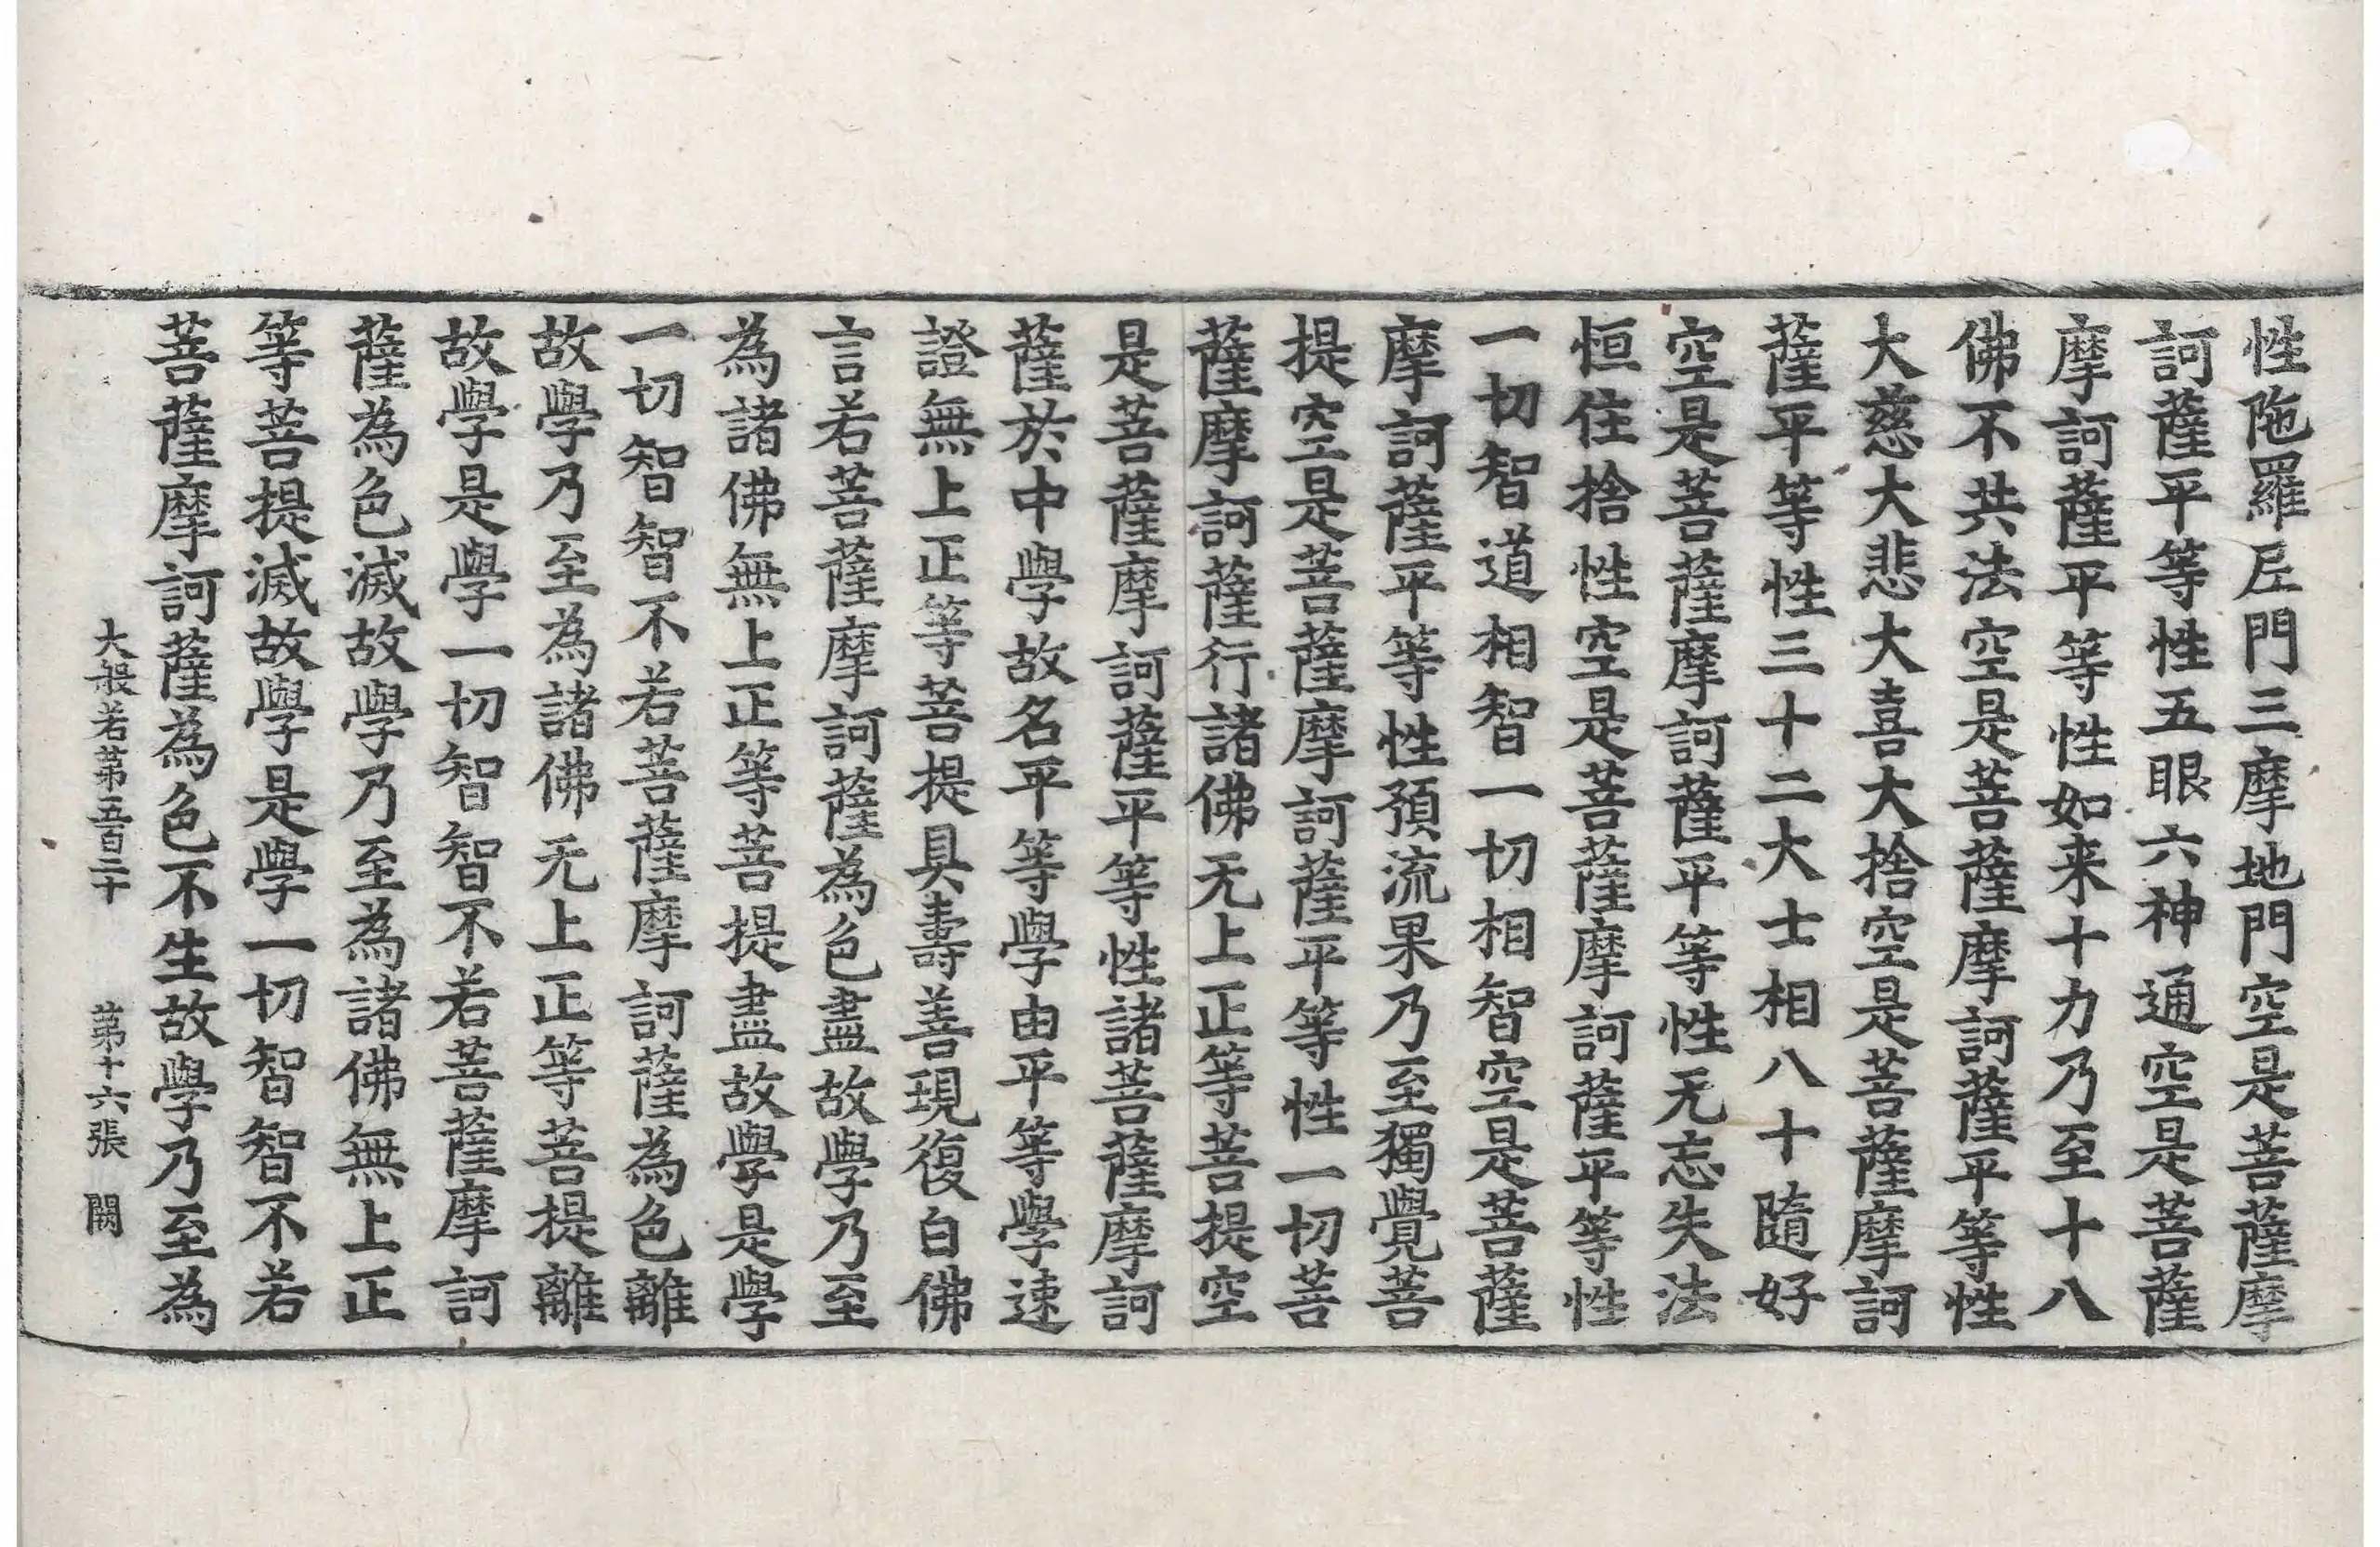 性陁羅尼門三摩地門空是菩薩摩
訶薩平等性五眼六神通空是菩薩
摩訶薩平等性如来十力乃至十八
佛不共法空是菩薩摩訶薩平等性
大慈大悲大喜大捨空是菩薩摩訶
薩平等性三十二大士相八十隨好
空是菩薩摩訶薩平等性无忘失法
恒住捨性空是菩薩摩訶薩平等性
一切智道相智一切相智空是菩薩
摩訶薩平等性預流果乃至獨覺菩
提空是菩薩摩訶薩平等性一切菩
薩摩訶薩行諸佛无上正等菩提空
是菩薩摩訶薩平等性諸菩薩摩訶
薩於中學故名平等學由平等學速
證無上正等菩提具壽善現復白佛
言若菩薩摩訶薩為色盡故學乃至
為諸佛無上正等菩提盡故學是學
一切智智不若菩薩摩訶薩為色離
故學乃至為諸佛无上正等菩提離
故學是學一切智智不若菩薩摩訶
薩為色滅故學乃至為諸佛無上正
等菩提滅故學是學一切智智不若
菩薩摩訶薩為色不生故學乃至為
大般若第五百二十 第十六張 闕